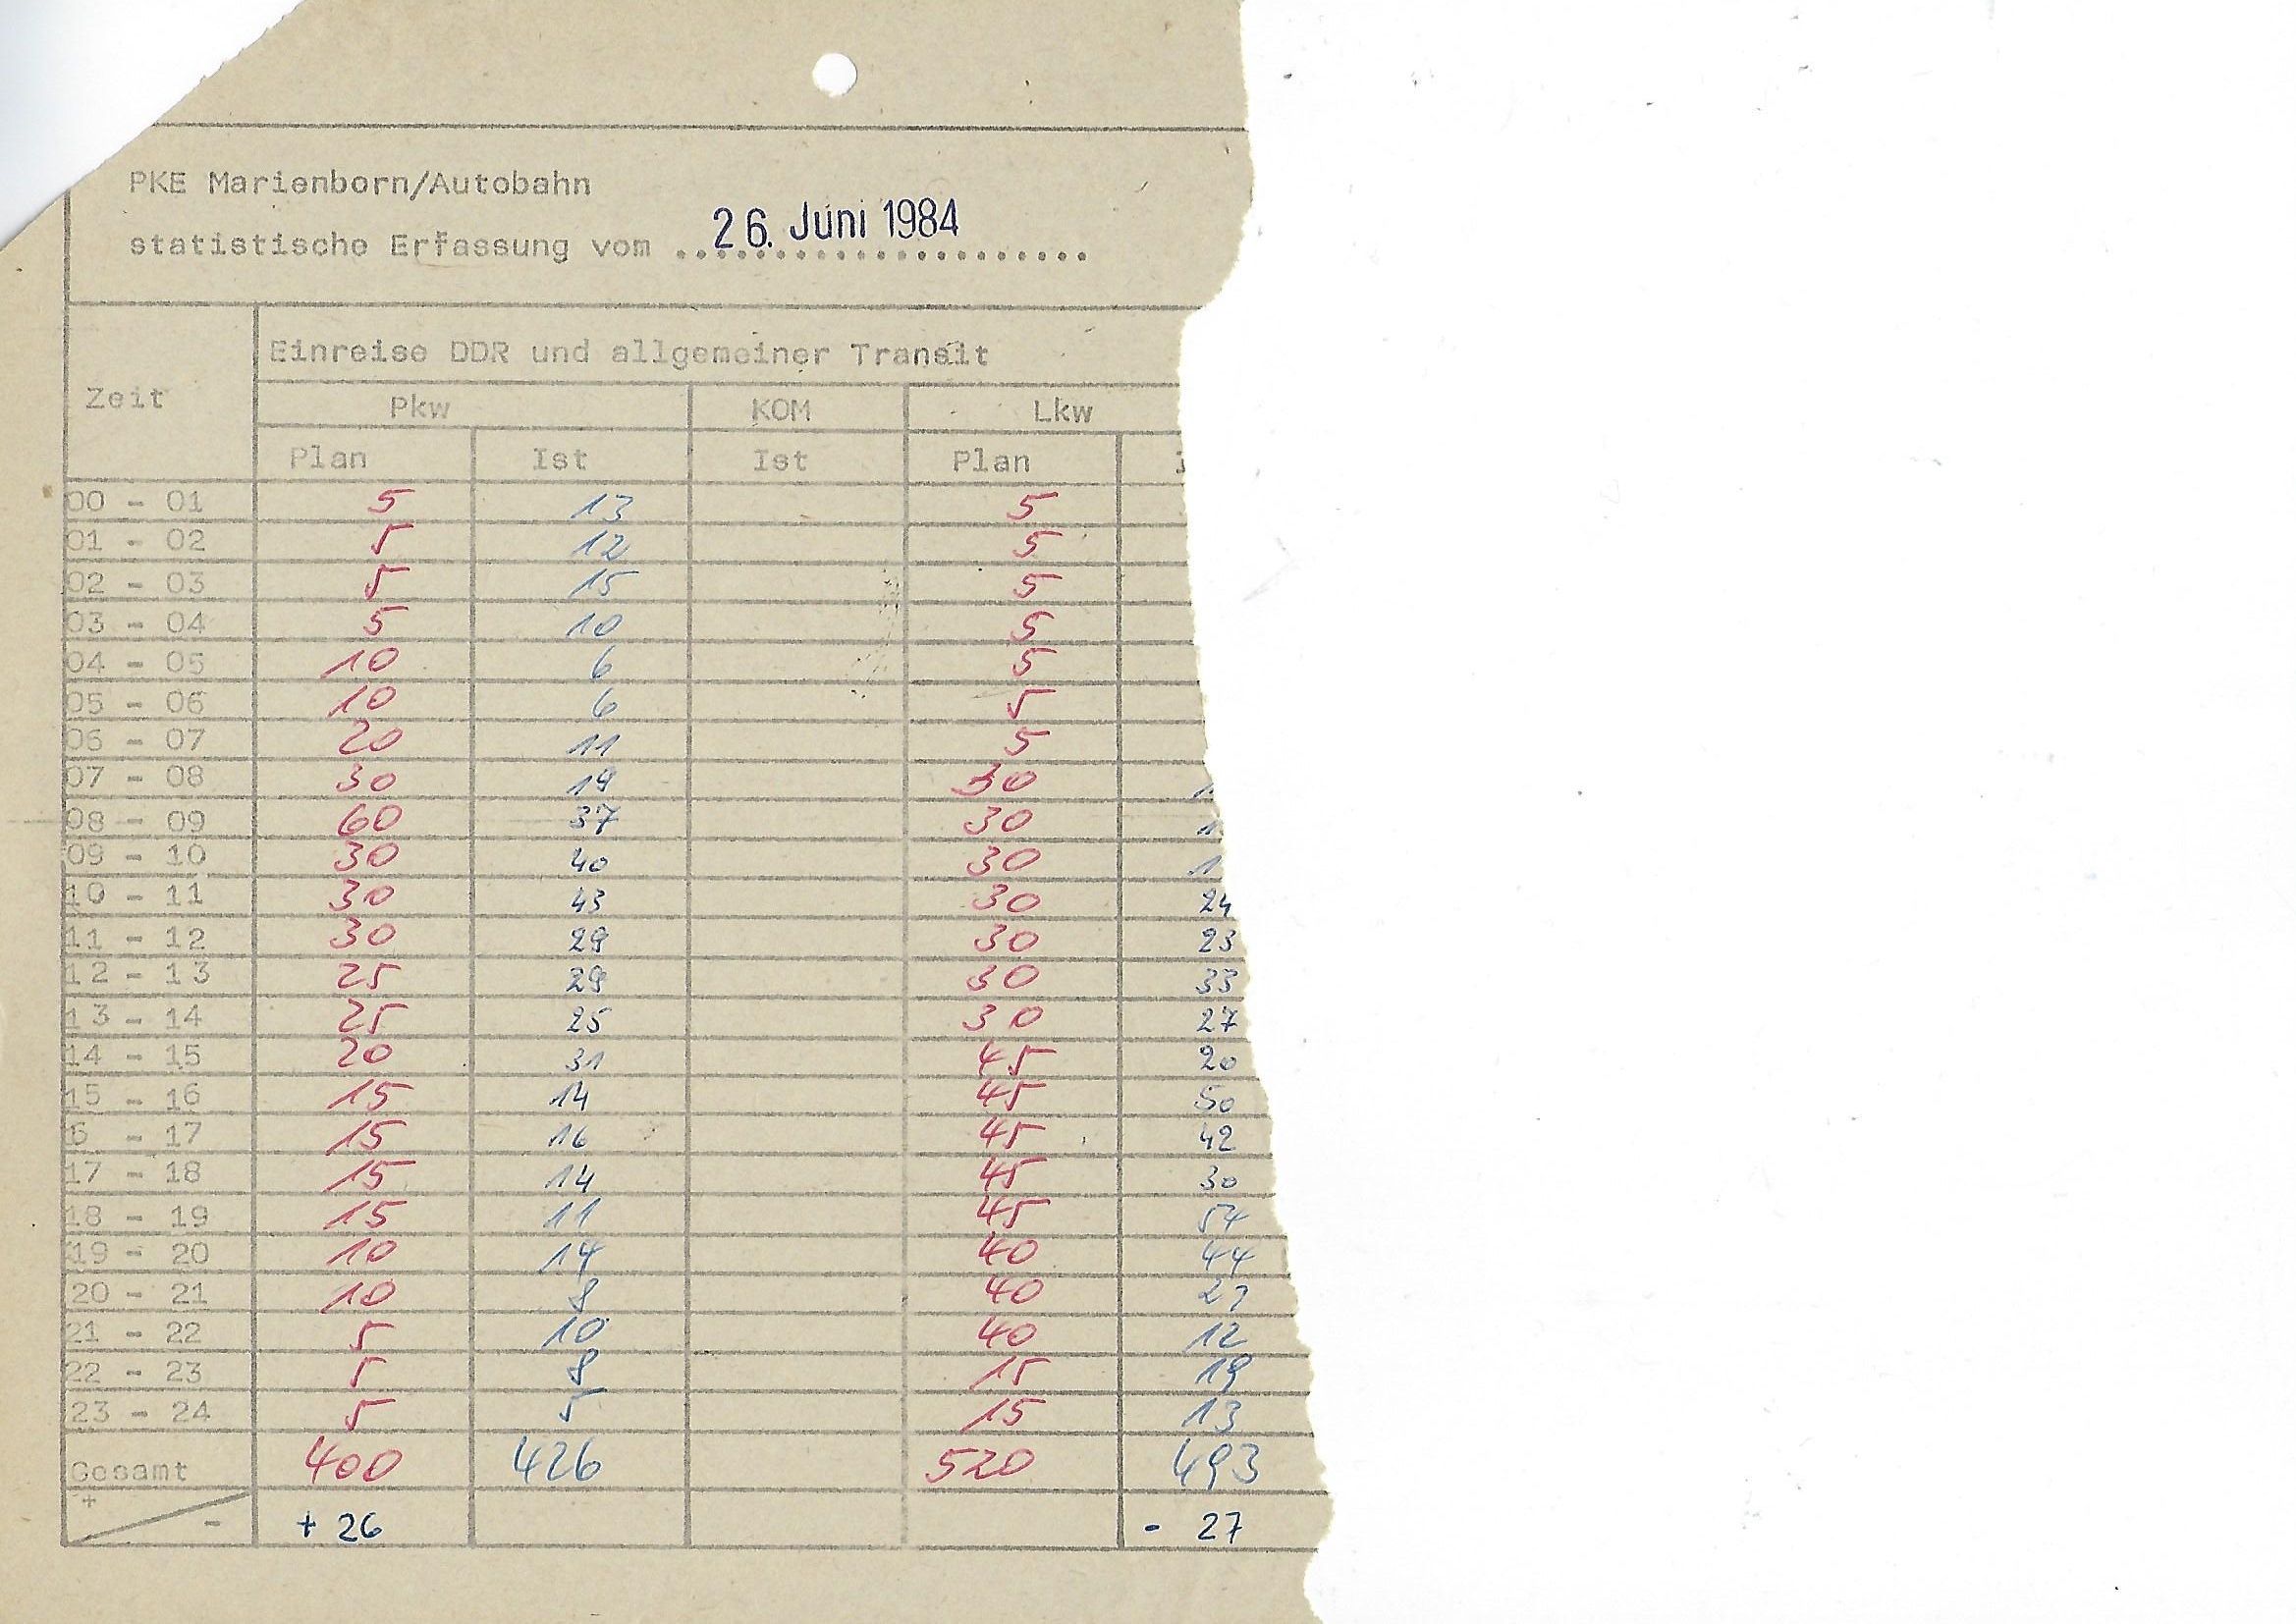 PKE Marienborn/Autobahn
statistische Erfassung vom 26. Juni 1984
Einreise DDR und allgemeiner Transit
Zeit
Pkw KOM Lkw
Plan Ist Ist Plan
00 - 01 5 13 5
01 - 02 5 12 5
02 - 03 5 15 5
03 - 04 5 10 5
04 - 05 10 6 5
05 - 06 10 6 5
06 - 07 20 11 5
07 - 08 30 19 30 1
08 - 09 60 37 30 1
09 - 10 30 40 30 1
10 - 11 30 43 30 24
11 - 12 30 29 30 23
12 - 13 25 29 30 33
13 - 14 25 25 30 27
14 - 15 20 31 45 20
15 - 16 15 14 45 50
6 - 17 15 16 45 42
17 - 18 15 14 45 30
18 - 19 15 11 45 54
19 - 20 10 14 40 44
20 - 21 10 8 40
21 - 22 5 10 40 12
22 - 23 5 8 15 19
23 - 24 5 5 15 13
Gesamt 400 426 520 493
+ - + 26 - 27